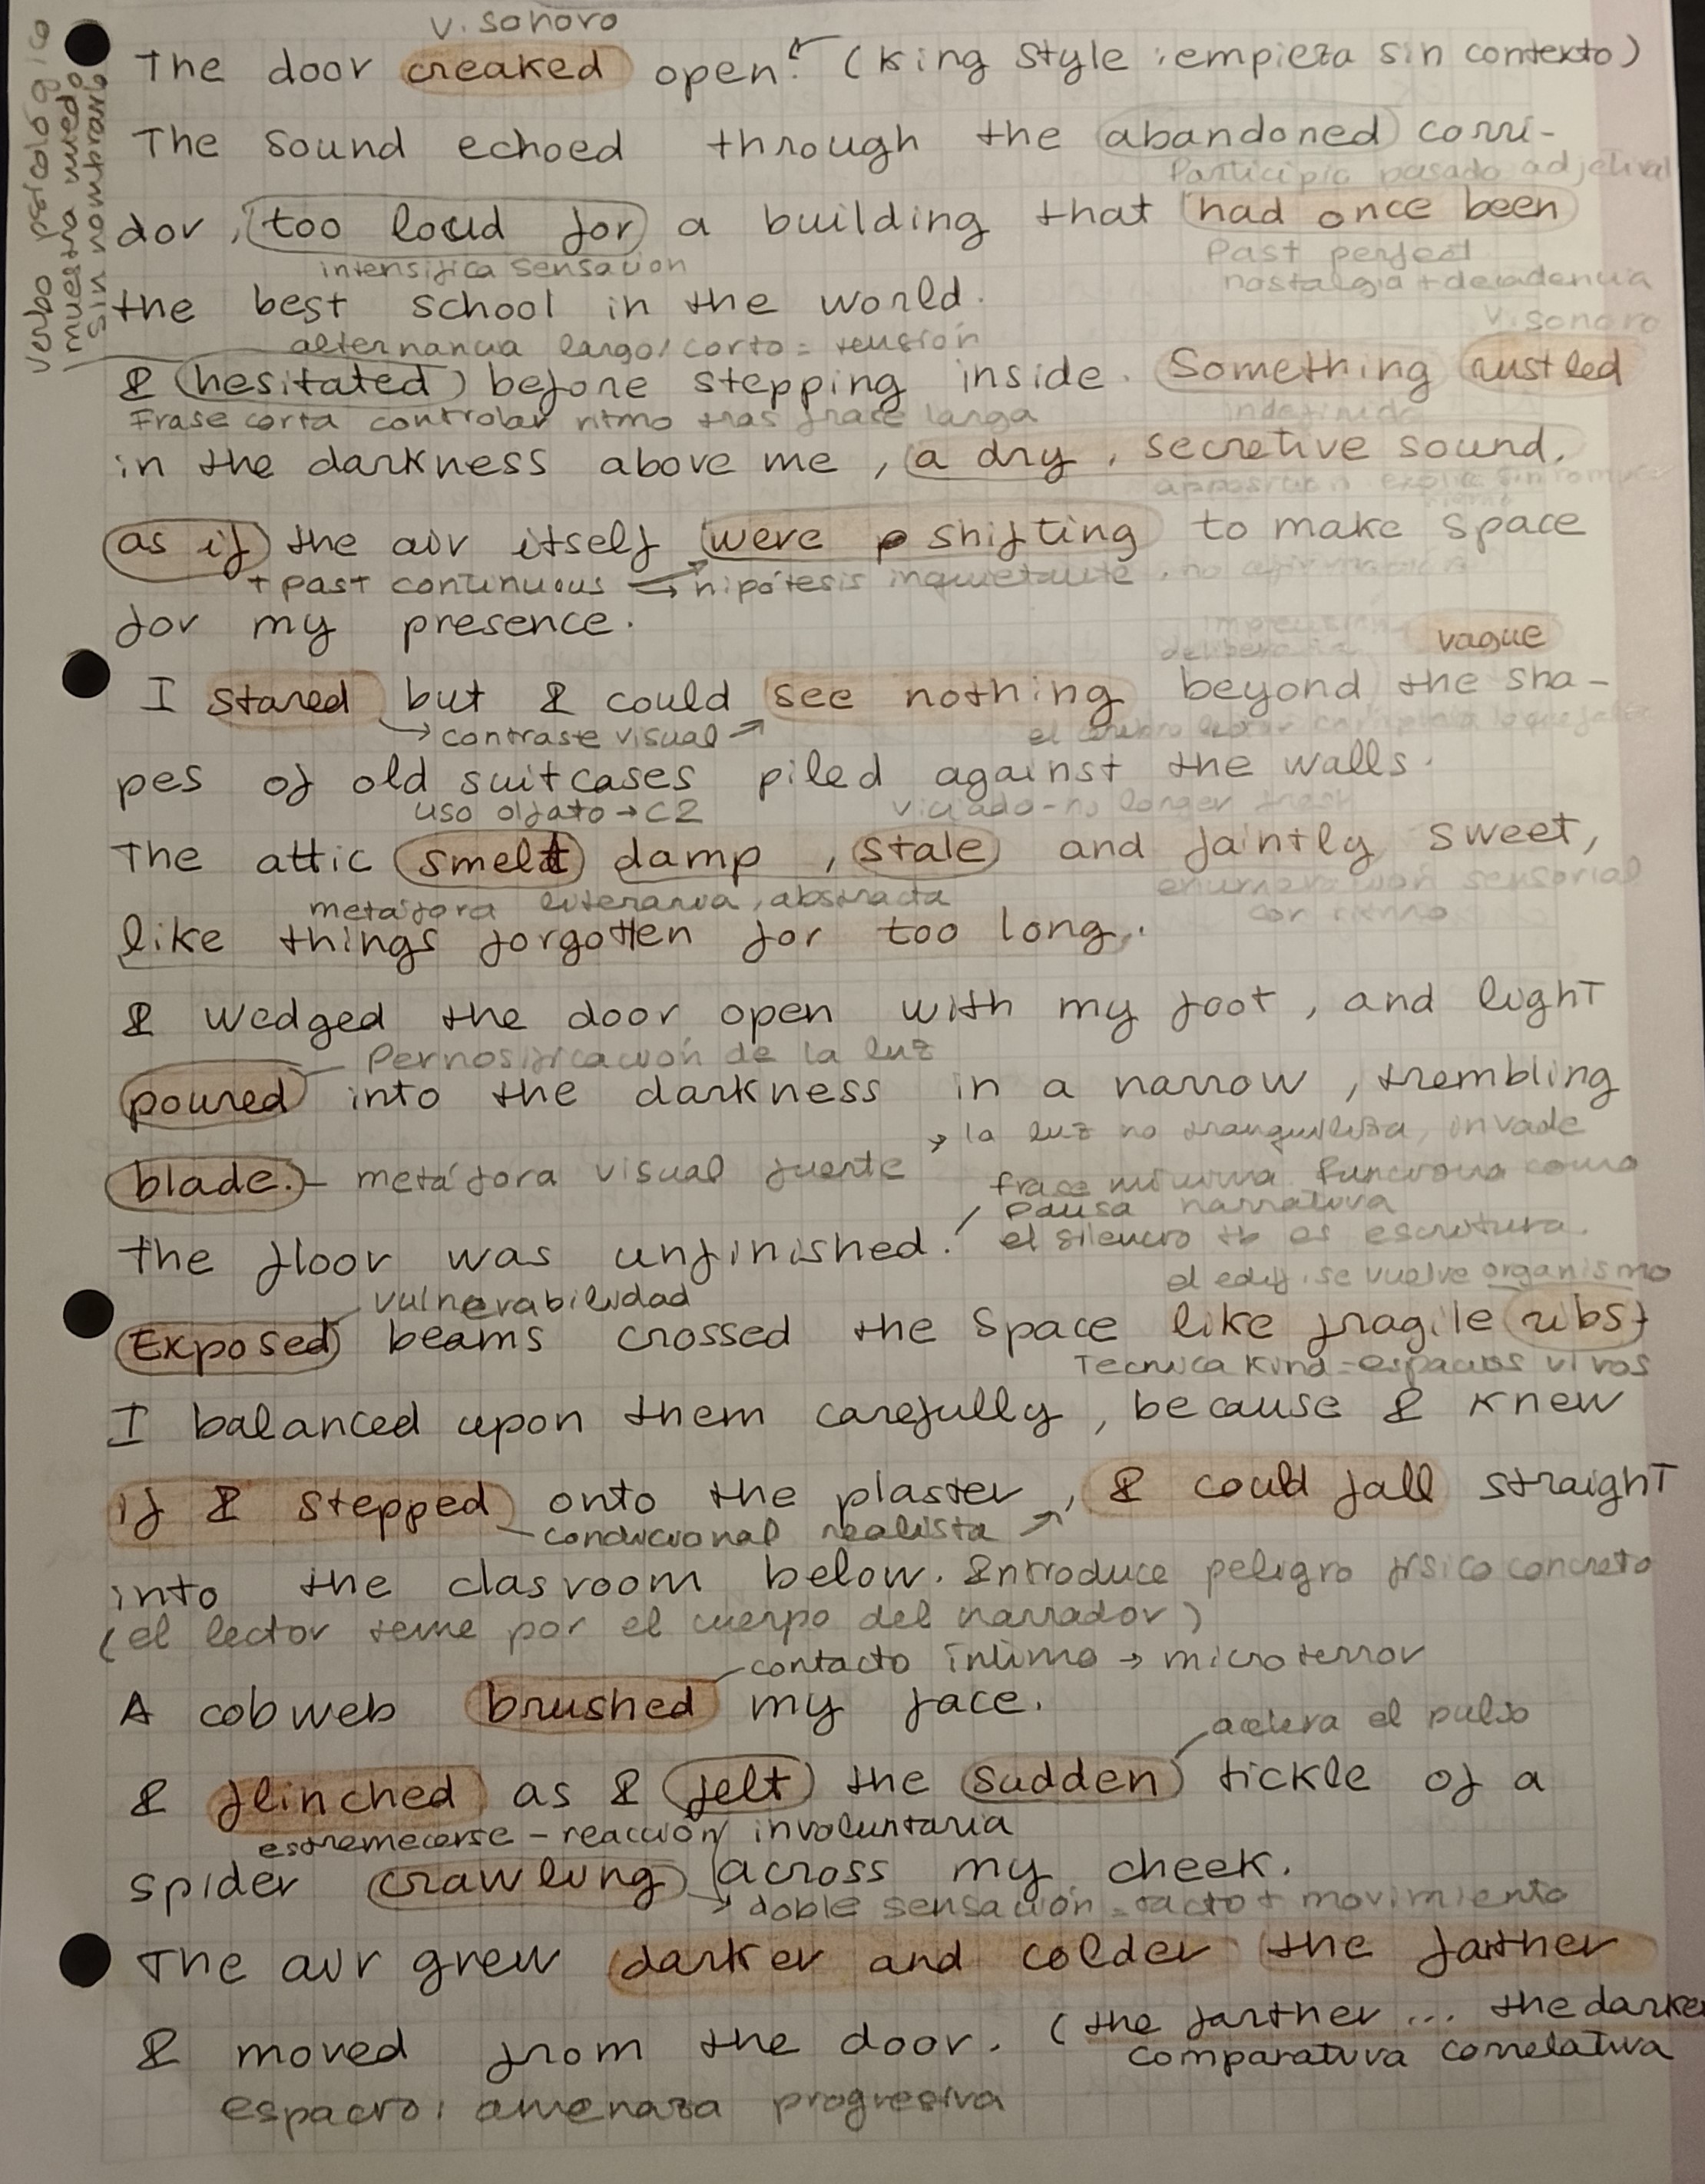 v. sonoro
The door creaked open. (King Style: empieza sin contexto)
The sound echoed through the abandoned corri-
Participio pasado adjetival
dor, too loud for a building that had once been
intensifica sensación Past perfect
nostalgia + decadencia
the best school in the world.
v. sonoro
alternancia largo/corto = tensión
verbo psicológico
muestra miedo
sin nombrarlo
I hesitated before stepping inside. Something rustled
Frase corta controlar ritmo tras frase larga indefinido
in the darkness above me, a dry, secretive sound,
as if the air itself were shifting to make space
+ past continuous hipótesis inquietante, no afirmación
for my presence.
vague
I stared but I could see nothing beyond the sha-
contraste visual
pes of old suitcases piled against the walls.
uso olfato → C2 viciado - no longer fresh
The attic smelt damp, stale and faintly sweet,
enumeración sensorial
metáfora literaria, abstracta con ritmo
like things forgotten for too long.
I wedged the door open with my foot, and light
Pernosificación de la luz
poured into the darkness in a narrow, trembling
→ la luz no tranquiliza, invade
blade. - metáfora visual fuerte
frase mínima funciona como
pausa narrativa
the floor was unfinished. el silencio tb es escritura.
el edif. se vuelve organismo
vulnerabilidad
Exposed beams crossed the space like fragile ribs
Tecnica Kind = espacios vivos
I balanced upon them carefully, because I knew
if I stepped onto the plaster, I could fall straight
condicional realista
into the clasroom below. Introduce peligro físico concreto
(el lector teme por el cuerpo del narrador)
contacto íntimo → microterror
A cobweb brushed my face.
acelera el pulso
I flinched as I felt the sudden tickle of a
estremecerse - reacción involuntaria
spider crawling across my cheek.
→ doble sensación = tacto + movimiento
The air grew darker and colder the farther
I moved from the door. (the farther ... the darker
comparativa correlativa
espacio: amenaza progresiva